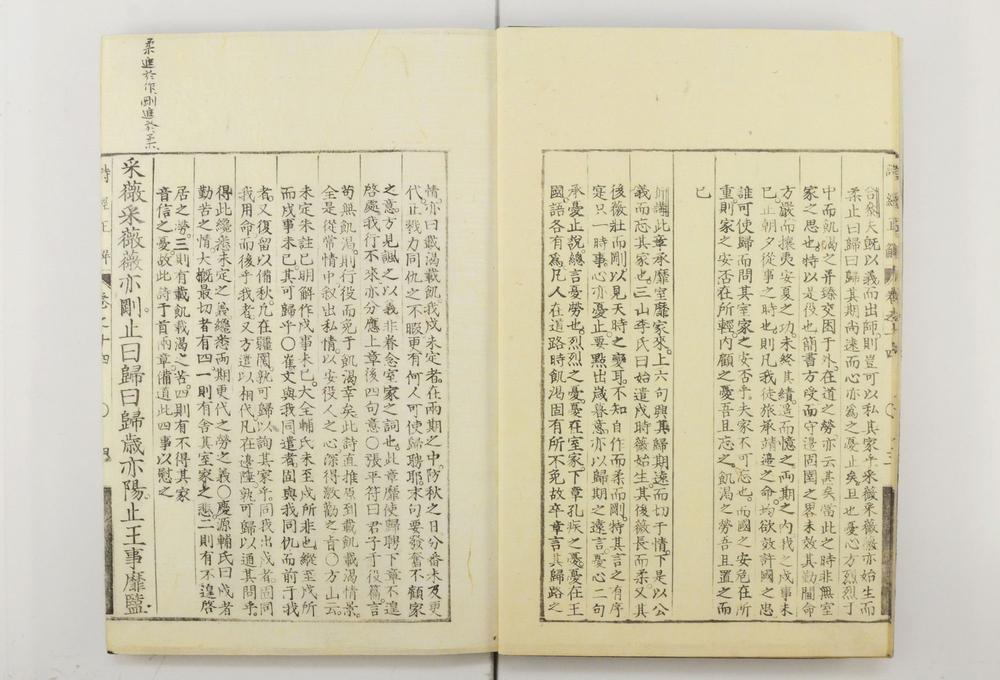 合參大旣以義而出師則豈可以私其家乎采薇采薇薇亦始生而
柔止曰歸曰歸其期尚遠而心亦為之憂止矣且也憂心方烈烈丁
中而飢渴之并臻交困于外在道之勞亦云甚矣當此之時非無室
家之思也特以是役也簡書方受而守邊固圉之畧未效其勤閫命
方嚴而攘夷安夏之功未終其績遙而憶之兩期之內我之戍事未
已正朝夕從事之時也則凡我徒旅承靖邊之命均欲效許國之忠
誰可使歸而問其室家之安否乎夫家不可忘也而國之安危在所
重則家之安否在所輕內顧之憂吾且忘之飢渴之勞吾且置之而
已
析講此章承靡室靡家來上六句興其歸期遠而切于情下是以公
義而忘其家也三山李氏曰始遣戍時薇始生其後薇長而柔又其
後薇壯而剛以見天時之變耳不知自作而柔而剛特其言之有序
寔只一時事心亦憂止要點出歲暮意亦以歸期之遠言憂心二句
承憂止說總言憂勞也烈烈之憂憂在室家下章孔疚之憂憂在王
國語各有為凡人在道路時飢渴固有所不免故卒章言其歸路之
情亦曰載渴載飢我戍未定者在兩期之中防秋之日分番未及更
代正戮力同仇之不暇更有何人可使歸聘耶末句要發奮不顧家
之意方見諷之以義非眷念室家之詞也此章靡使歸聘下章不遑
啓處我行不來亦分應上章後四句意○張平符曰君子于役篇言
苟無飢渴則行役而免于飢渴幸矣此詩直推原到載飢載渴情景
全是從常情中叙出私情以安役人之心深得激勸之旨○方山云
未定朱註已明解作戍事未已大全輔氏未至戍所非也縱至戍所
而戍事未已其可歸乎○崔文與我同遣者固與我同仇而前于我
者又復留以備秋凢在疆圉孰可歸以詢其家乎同我出戍者固同
我用命而後乎我者又方遣以相代凡在邊陲孰可歸以通其問乎
得此纔悉未定之義纔悉兩期更代之勞之義○慶源輔氏曰戍者
勤苦之情大槩最切者有四一則有舍其室家之悲二則有不遑啓
居之勞三則有載飢載渴之苦四則有不得其家
音信之憂故此詩于首兩章備道此四事以慰之
采薇采薇薇亦剛止曰歸曰歸歲亦陽止王事靡盬
柔進於作剛進於柔
詩經正解
卷之十四